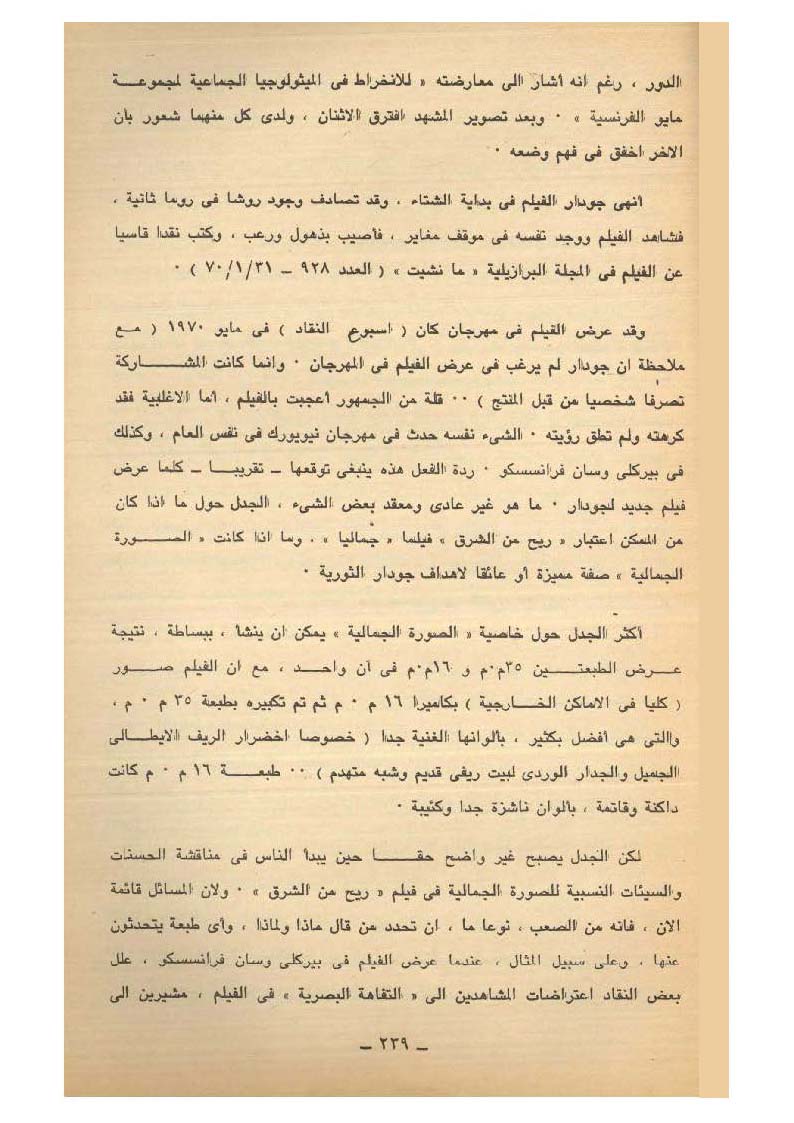 الدور ، رغم انه أشار الى معارضته « للانخراط فى الميثولوجيا الجماعية لمجموعة
مايو الفرنسية » ٠ وبعد تصوير المشهد افترق الاثنان ، ولدى كل منهما شعور بان
الاخر اخفق فى فهم وضعه ٠
أنهى جودار الفيلم فى بداية الشتاء ، وقد تصادف وجود روشا فى روما ثانية ،
فشاهد الفيلم ووجد نفسه فى موقف مغاير ، فأصيب بذهول ورعب ، وكتب نقدا قاسيا
عن الفيلم فى المجلة البرازيلية « ما نشيت » ( العدد ٩٢٨ – ٧٠/١/٣١ ) ٠
وقد عرض الفيلم فى مهرجان كان ( اسبوع النقاد ) فى مايو ١٩٧٠ ( مع
ملاحظة ان جودار لم يرغب فى عرض الفيلم فى المهرجان ٠ وانما كانت المشاركة
تصرفا شخصيا من قبل المنتج ) ٠٠ قلة من الجمهور أعجبت بالفيلم ، أما الاغلبية فقد
كرهته ولم تطق رؤيته ٠ الشىء نفسه حدث فى مهرجان نيويورك فى نفس العام ، وكذلك
فى بيركلى وسان فرانسسكو ٠ ردة الفعل هذه ينبغى توقعها – تقريبا – كلما عرض
فيلم جديد لجودار ٠ ما هو غير عادى ومعقد بعض الشىء ، الجدل حول ما اذا كان
من الممكن اعتبار « ريح من الشرق » فيلما « جماليا » ، وما اذا كانت « الصورة
الجمالية » صفة مميزة أو عائقا لاهداف جودار الثورية ٠
أكثر الجدل حول خاصية « الصورة الجمالية » يمكن ان ينشأ ، ببساطة ، نتيجة
عرض الطبعتين ٣٥م٠م و ١٦م٠م فى آن واحد ، مع ان الفيلم صور
( كليا فى الاماكن الخارجية ) بكاميرا ١٦ م ٠ م ثم تم تكبيره بطبعة ٣٥ م ٠ م ،
والتى هى أفضل بكثير ، بألوانها الغنية جدا ( خصوصا اخضرار الريف الايطالى
الجميل والجدار الوردى لبيت ريفى قديم وشبه متهدم ) ٠٠ طبعة ١٦ م ٠ م كانت
داكنة وقاتمة ، بألوان ناشزة جدا وكئيبة ٠
لكن الجدل يصبح غير واضح حقا حين يبدأ الناس فى مناقشة الحسنات
والسيئات النسبية للصورة الجمالية فى فيلم « ريح من الشرق » ٠ ولان المسائل قائمة
الان ، فانه من الصعب ، نوعا ما ، ان تحدد من قال ماذا ولماذا ، وأى طبعة يتحدثون
عنها ، وعلى سبيل المثال ، عندما عرض الفيلم فى بيركلى وسان فرانسسكو ، علل
بعض النقاد اعتراضات المشاهدين الى « التفاهة البصرية » فى الفيلم ، مشيرين الى
– ٢٣٩ –